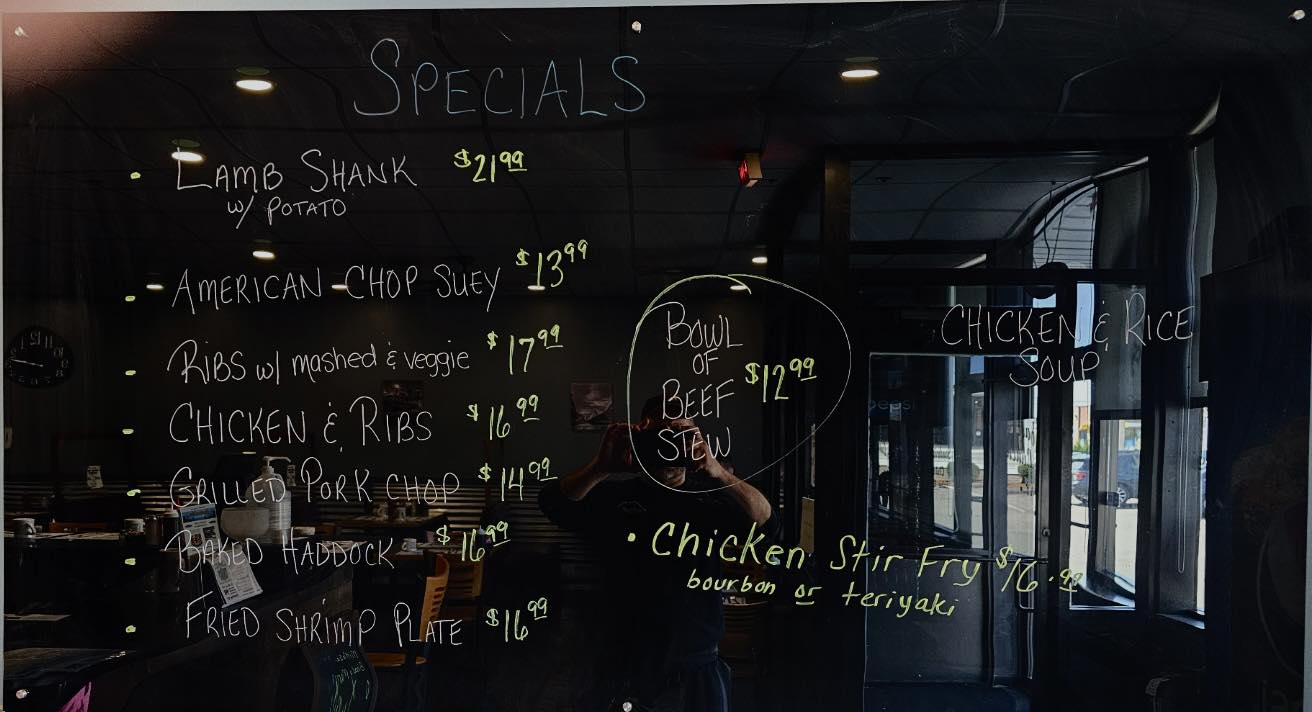 SPECIALS
• LAMB SHANK $21.99
w/ POTATO
• AMERICAN CHOP SUEY $13.99
• RIBS w/ mashed & veggie $17.99
• CHICKEN & RIBS $16.99
• GRILLED PORK CHOP $14.99
• BAKED HADDOCK $16.99
• FRIED SHRIMP PLATE $16.99
BOWL
OF
BEEF $12.99
STEW
CHICKEN & RICE
SOUP
• Chicken Stir Fry $16.99
bourbon or teriyaki